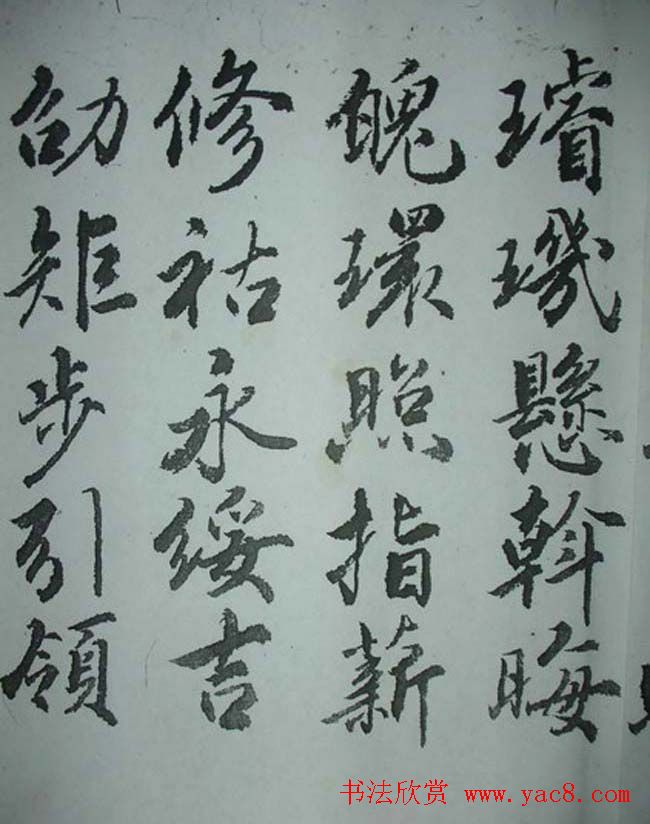 璿璣懸斡晦
魄環照指薪
修祜永綏吉
劭矩步引領
书法欣赏 www.yac8.com